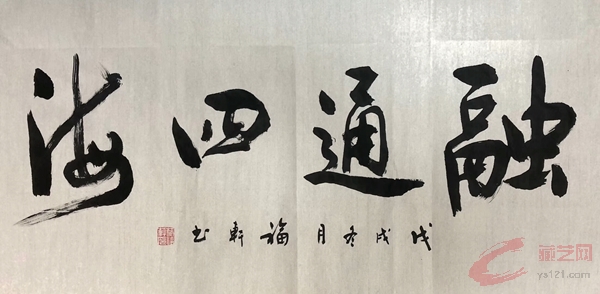 融通四海
戊戌冬月福軒书
藏艺网
ys121.com